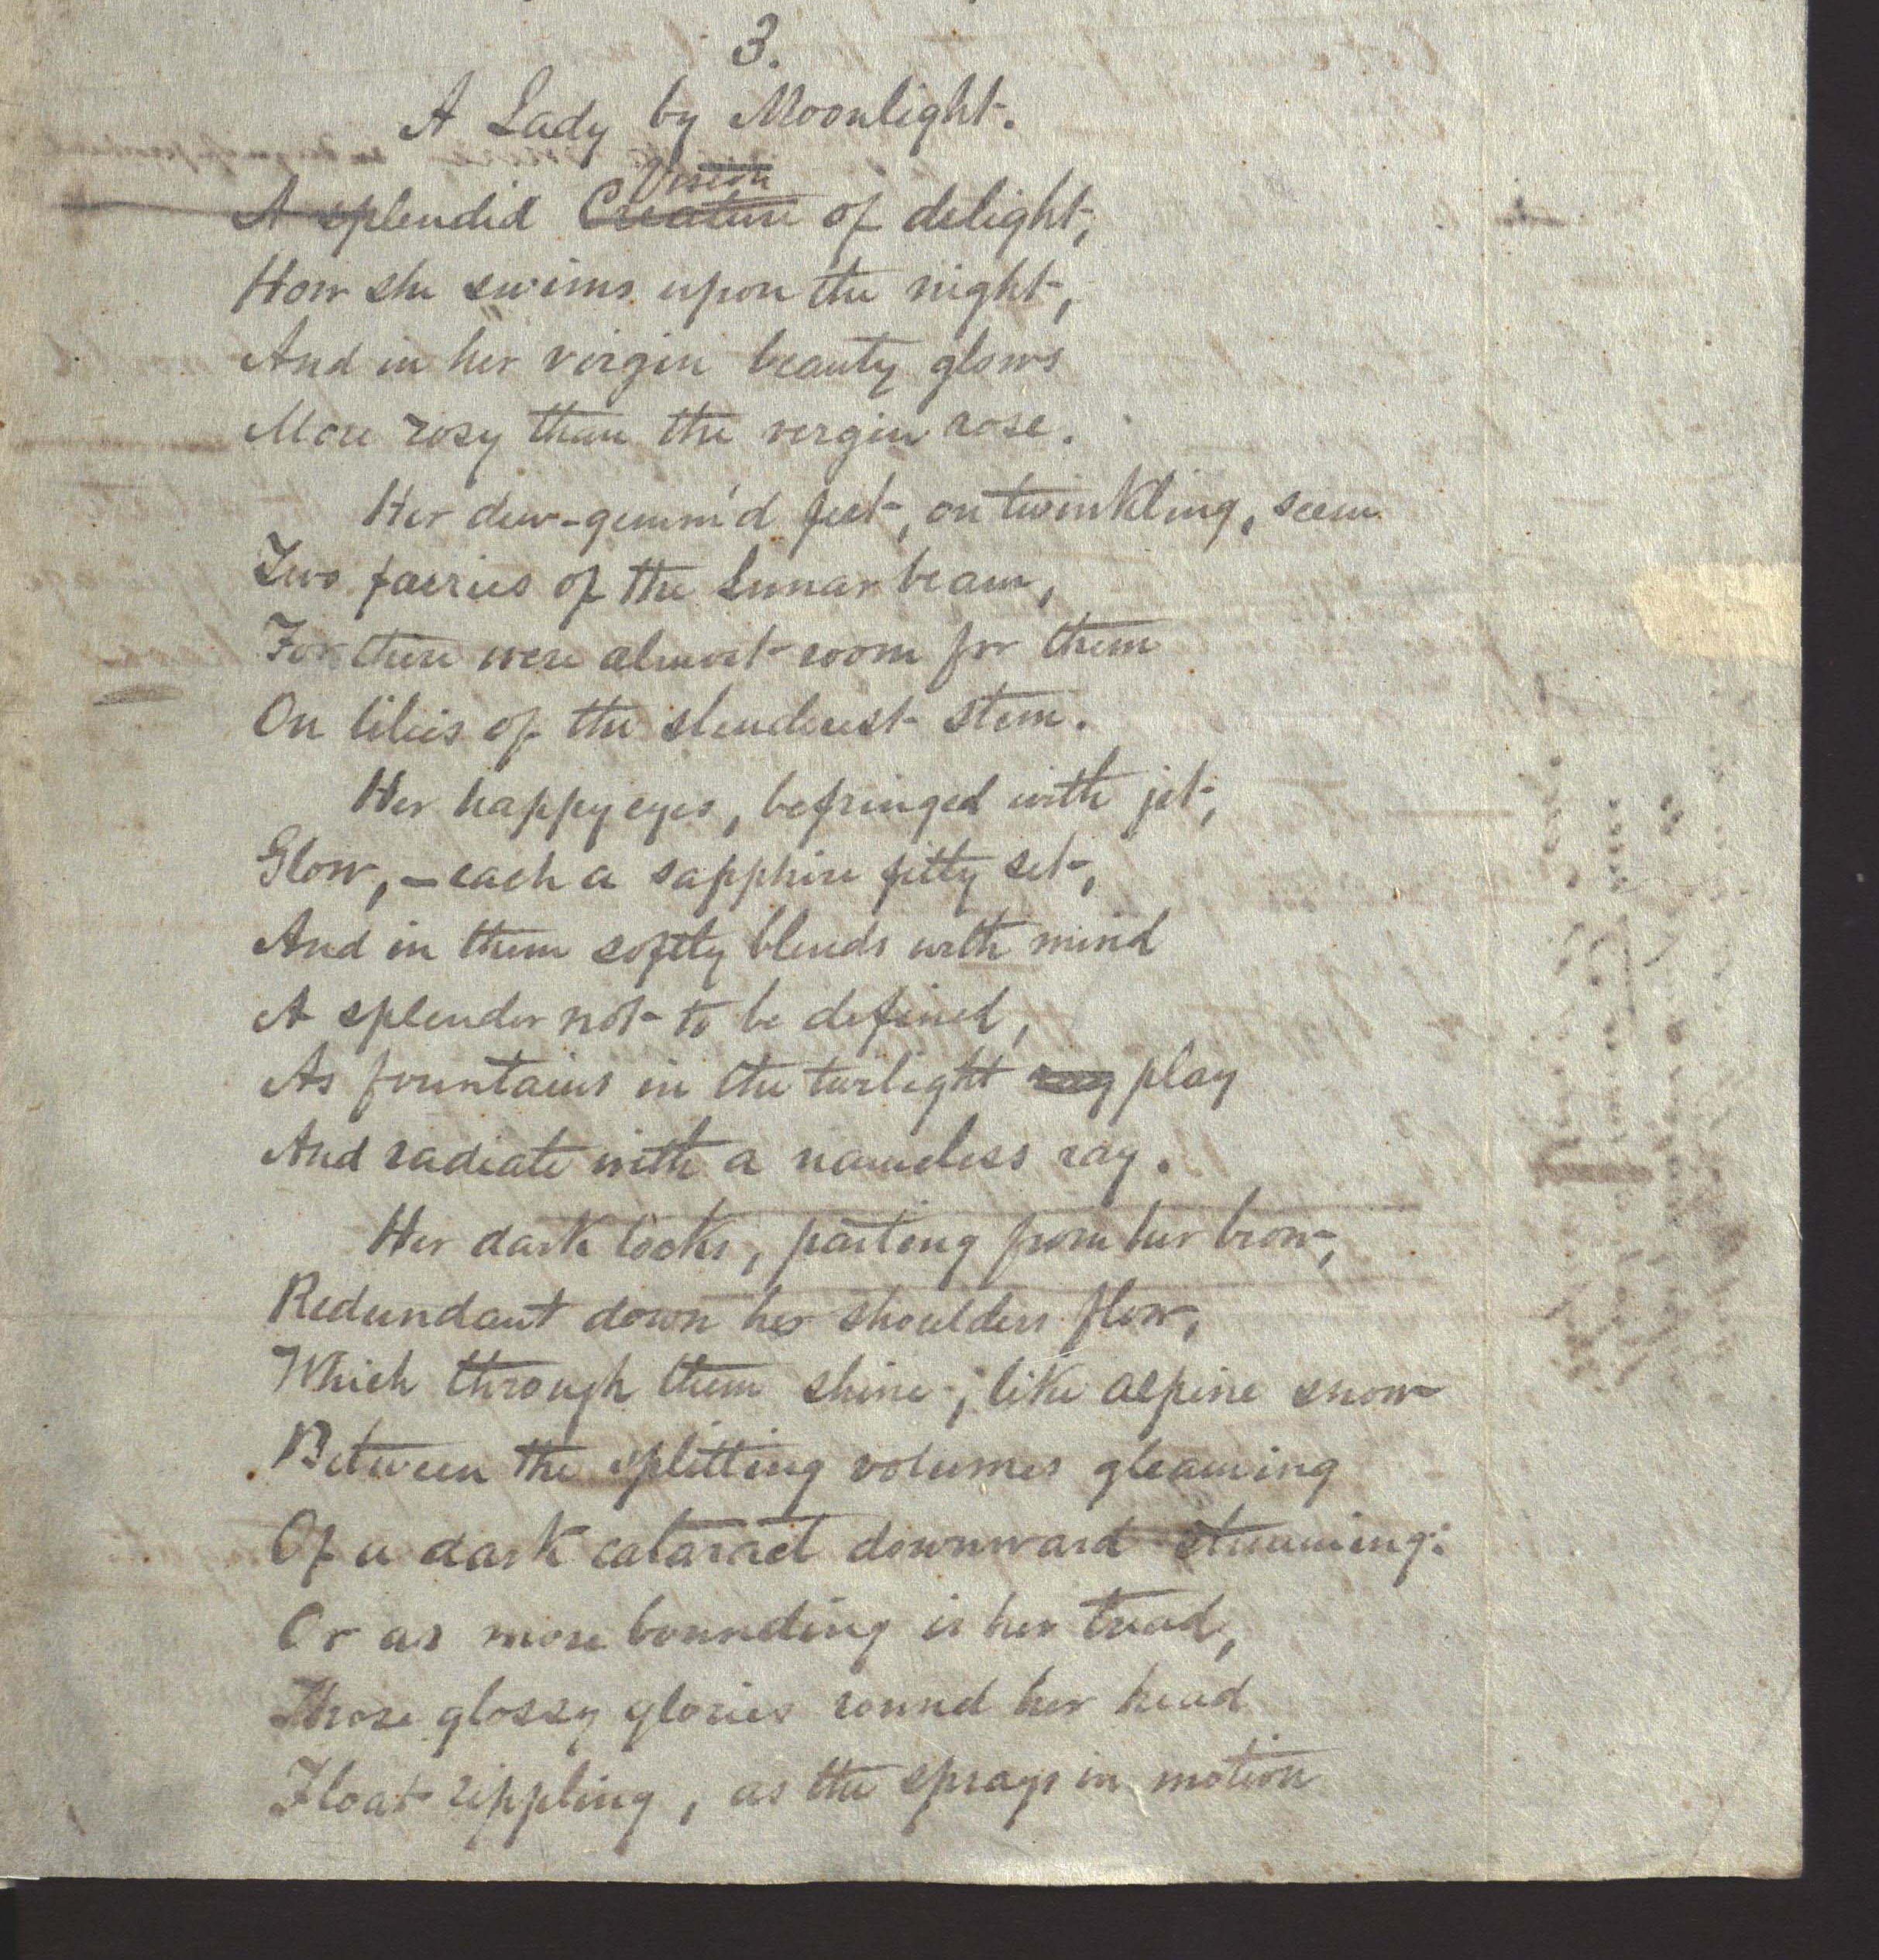 3.
A Lady by Moonlight.
Vision
A splendid Creature of delight,
How she swims upon the night,
And in her virgin beauty glows
More rosy than the virgin rose.
Her dew-gemm'd feet, on twinkling, seem
Two faeries of the Lunar beam,
For there were almost room for them
On lilies of the slenderest stem.
Her happy eyes, befringed with jet,
Glow,—each a sapphire fitly set,
And in them softly blends with mind
A splendor not to be defined,
As fountains in the twilight ray play
And radiate with a nameless ray.
Her dark locks, parting from her brow,
Redundant down her shoulders flow,
Which through them shine, like alpine snow
Between the splitting volumes gleaming
Of a dark cataract downward streaming:
Or as more bounding is her tread,
Those glossy glories round her head
Float rippling, as the sprays in motion